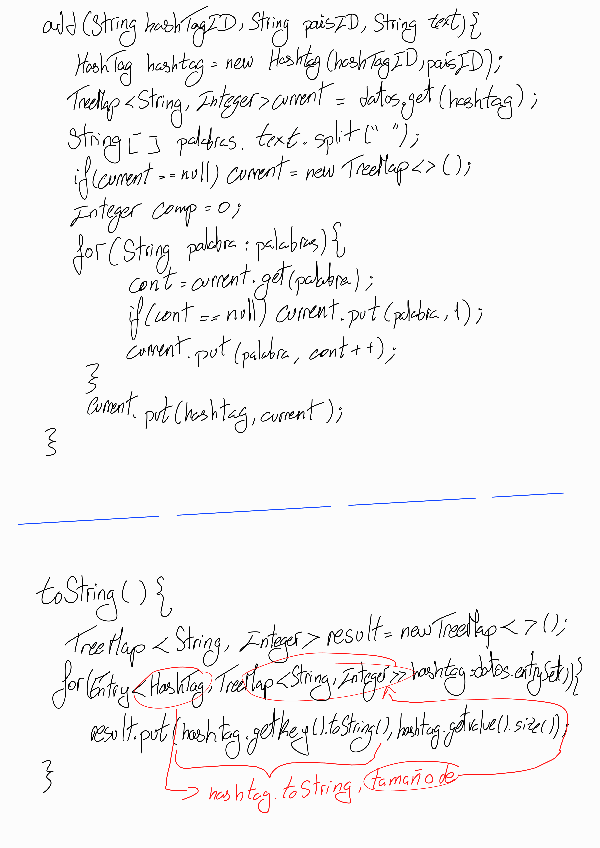 add(String hashTagID, String paisID, String text){
HashTag hashtag = new Hashtag(hashTagID, paisID);
TreeMap<String, Integer> current = datos.get(hashtag);
String[] palabras. text.split(" ");
if(current == null) current = new TreeMap<>();
Integer comp = 0;
for(String palabra : palabras){
cont = current.get(palabra);
if(cont == null) current.put(palabra, 1);
current.put(palabra, cont++);
}
current.put(hashtag, current);
}
toString(){
TreeMap<String, Integer> result = new TreeMap<>();
for(Entry<HashTag, TreeMap<String, Integer>> hashtag : datos.entrySet()){
result.put(hashtag.getKey().toString(), hashtag.getValue().size());
}
hashtag.toString, tamaño de